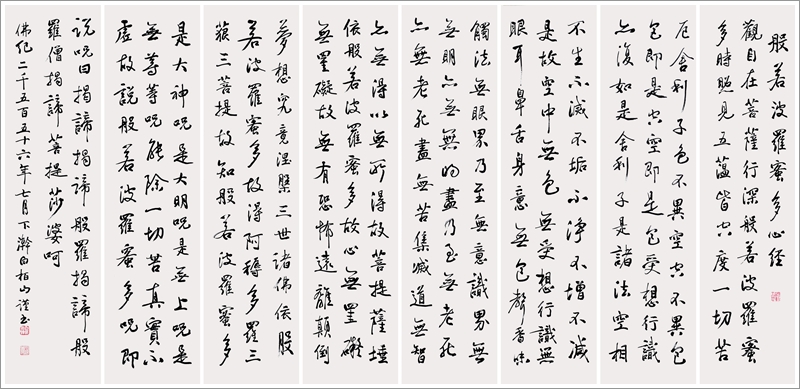 般若波羅蜜多心經
觀自在菩薩行深般若波羅蜜
多時照見五蘊皆空度一切苦
厄舍利子色不異空空不異色
色即是空空即是色受想行識
亦復如是舍利子是諸法空相
不生不滅不垢不淨不增不減
是故空中無色無受想行識無
眼耳鼻舌身意無色聲香味
觸法無眼界乃至無意識界無
無明亦無無明盡乃至無老死
亦無老死盡無苦集滅道無智
亦無得以無所得故菩提薩埵
依般若波羅蜜多故心無罣礙
無罣礙故無有恐怖遠離顛倒
夢想究竟涅槃三世諸佛依般
若波羅蜜多故得阿耨多羅三
藐三菩提故知般若波羅蜜多
是大神咒是大明咒是無上咒是
無等等咒能除一切苦真實不
虛故說般若波羅蜜多咒即
說咒曰揭諦揭諦般羅揭諦般
羅僧揭諦菩提莎婆呵
佛紀二千五百五十六年七月下瀚白柏山謹書